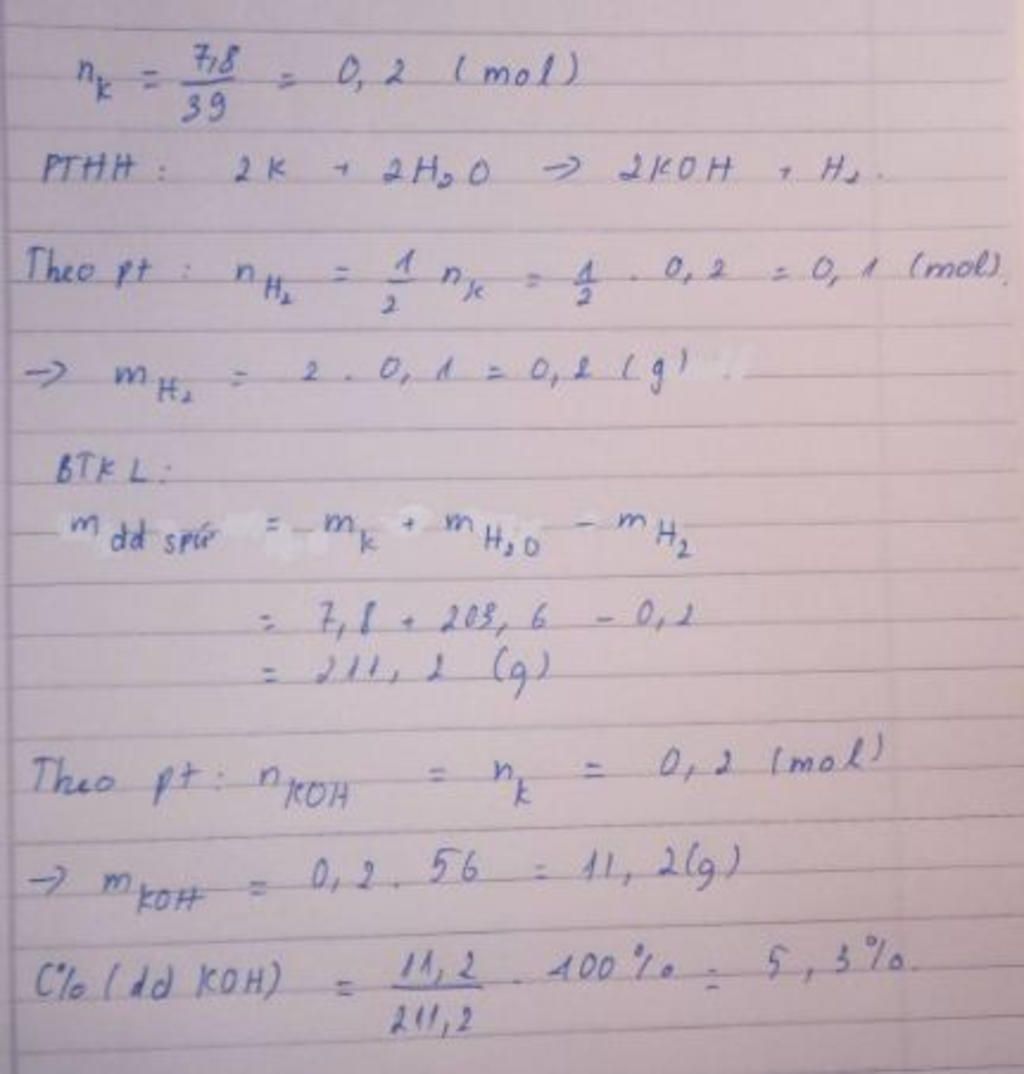 n_K = 7,8/39 = 0,2 (mol)
PTHH: 2K + 2H₂O → 2KOH + H₂.
Theo pt: n_H₂ = 1/2 n_K = 1/2 . 0,2 = 0,1 (mol).
→ m_H₂ = 2 . 0,1 = 0,2 (g)
BTKL:
m dd spứ = m_K + m_H₂O - m_H₂
= 7,8 + 203,6 - 0,2
= 211,2 (g)
Theo pt: n_KOH = n_K = 0,2 (mol)
→ m_KOH = 0,2 . 56 = 11,2(g)
C% (dd KOH) = 11,2/211,2 . 100% = 5,3%.